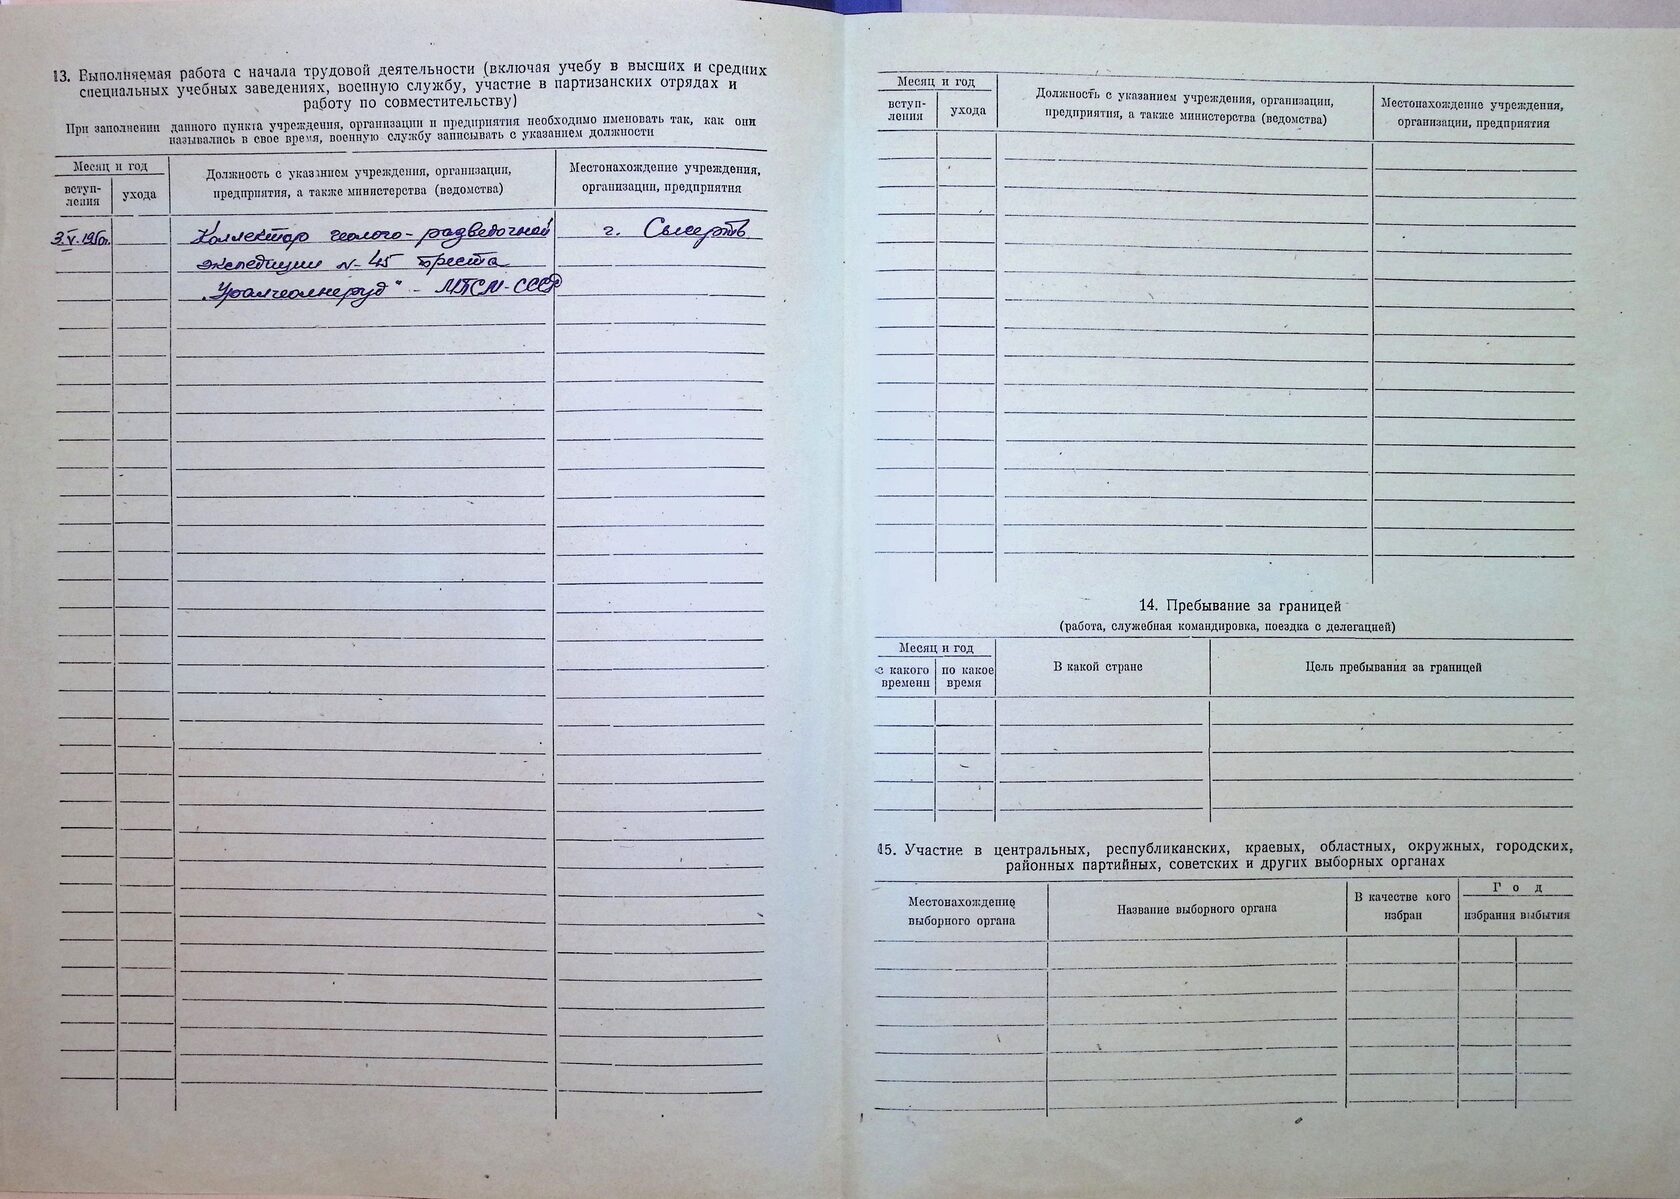 13. Выполняемая работа с начала трудовой деятельности (включая учебу в высших и средних
специальных учебных заведениях, военную службу, участие в партизанских отрядах и
работу по совместительству)
При заполнении данного пункта учреждения, организации и предприятия необходимо именовать так, как они
назывались в свое время, военную службу записывать с указанием должности
Месяц и год
вступ-
ления
ухода
Должность с указанием учреждения, организации,
предприятия, а также министерства (ведомства)
Местонахождение учреждения,
организации, предприятия
Коллектор геолого-разведочной
г.
экспедиции N-45 треста
„Уралгеолнеруд" - МПСМ-СССР
Месяц и год
вступ-
ления
ухода
Должность с указанием учреждения, организации,
предприятия, а также министерства (ведомства)
Местонахождение учреждения,
организации, предприятия
14. Пребывание за границей
(работа, служебная командировка, поездка с делегацией)
Месяц и год
с какого
времени
по какое
время
В какой стране
Цель пребывания за границей
15. Участие в центральных, республиканских, краевых, областных, окружных, городских,
районных партийных, советских и других выборных органах
Местонахождение
выборного органа
Название выборного органа
В качестве кого
избран
Год
избрания
выбытия